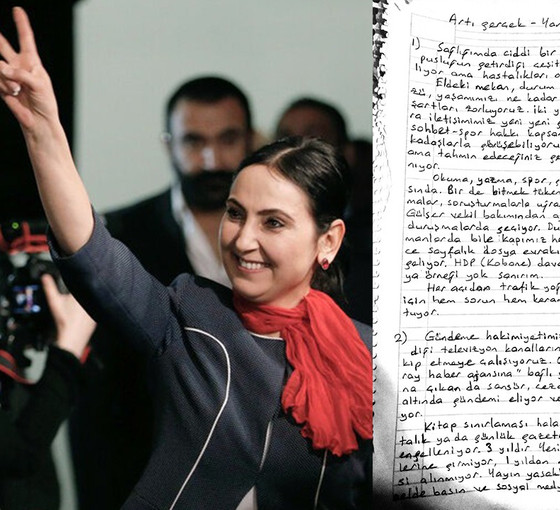 Artı Gerçek - Yar
1) Sağlığımda ciddi bir
pusluğun getirdiği çeşit
lıyor ama hastalıklar, o
Eldeki mekan, durum
zü, yaşamımızı ne kadar
şartları zorluyoruz. iki y
ra iletişimimiz yeni yeni
sohbet-spor hakkı kapsa
kadaşlarla görüşebiliyoru
ama tahmin edeceğiniz ge
nıyor.
Okuma, yazma, spor,
sında. Bir de bitmek tüken
malar, soruşturmalarla uğra
Gülser vekil bakımından a
duruşmalarda geçiyor. Du
manlarda bile kapımız he
ce sayfalık dosya evrakı
geliyor. HDP (Kobane) dava
ya örneği yok sanırım.
Her açıdan trafik yoğ
için hem sorun hem keran
tuyor.
2) Gündeme hakimiyetimi
diği televizyon kanalların
kip etmeye çalışıyoruz.
ray haber ajansına" bağlı
na çıkan da sansür, ceza
altında gündemi eliyor ve
yor.
Kitap sınırlaması hala
talık ya da günlük gazete
engelleniyor. 3 yıldır Yeni
lerine girmiyor, 1 yıldan
si alınamıyor. Yayın yasak
elde basın ve sosyal medy